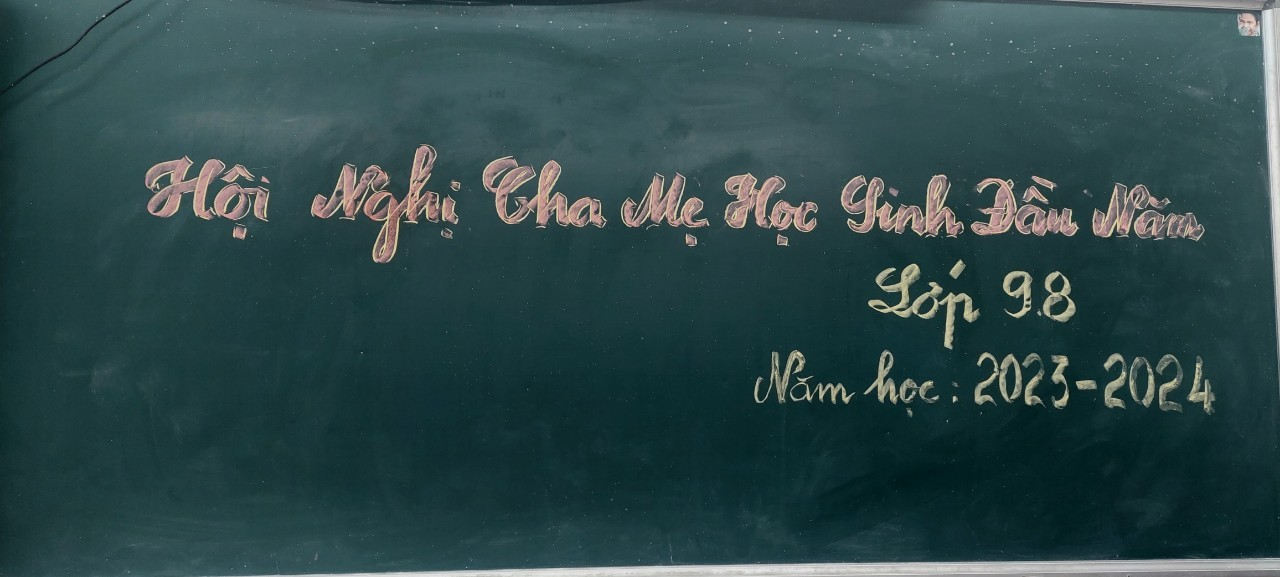 Hội Nghị Cha Mẹ Học Sinh Đầu Năm
Lớp 9.8
Năm học: 2023-2024